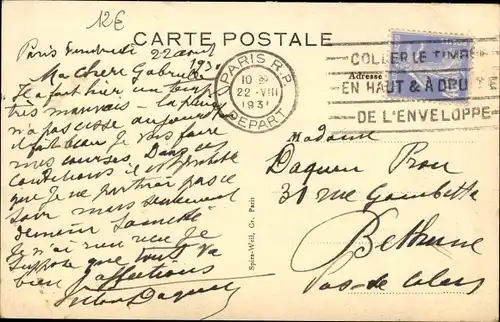 12€
CARTE POSTALE
Paris Vendredi 22 août
1931
Ma chère Gabrielle
Il a fait hier un temps
très mauvais - la pluie
n'a pas cessé aujourd'hui
il fait beau je vais faire
mes courses. Dans ces
conditions il est probable
que je ne partirai pas ce
soir mais seulement
demain Samedi
Je n'ai rien vu Je
suppose que tout va
bien
affections
Daquen
PARIS R.P.
10
22-VIII
1931
DEPART
COLLER LE TIMBRE
EN HAUT & A DROITE
DE L'ENVELOPPE
Adresse
Madame
Daquen Prou
31 rue Gambetta
Béthune
Pas-de-Calais
Spira-Weil, Gr. Paris